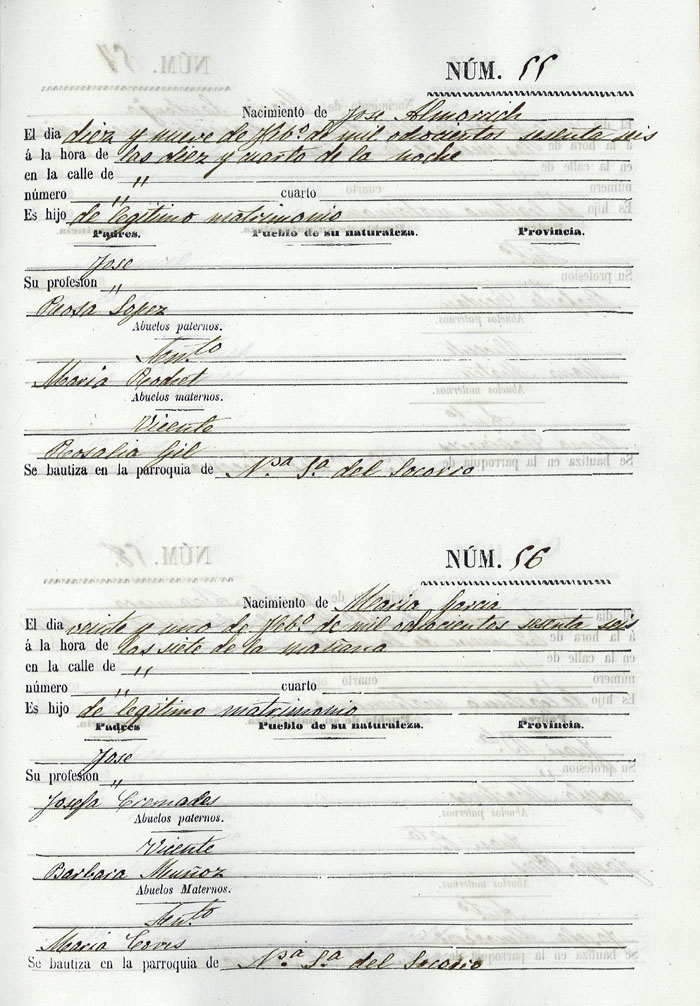 NÚM. 55
Nacimiento de Jose Almorach
El dia diez y nueve de Feb.º de mil ochocientos sesenta seis
á la hora de las diez y cuarto de la noche
en la calle de "
número " cuarto
Es hijo de legitimo matrimonio
Padres. Pueblo de su naturaleza. Provincia.
Jose
Su profesion "
Rosa Lopez
Abuelos paternos.
Maria
Abuelos maternos.
Vicente
Rosalia Gil
Se bautiza en la parroquia de N.ra S.ra del Socorro
NÚM. 56
Nacimiento de Maria Garcia
El dia veinte y uno de Feb.º de mil ochocientos sesenta seis
á la hora de las siete de la mañana
en la calle de "
número " cuarto
Es hijo de legitimo matrimonio
Padres Pueblo de su naturaleza. Provincia.
Jose
Su profesion "
Josefa Cremades
Abuelos paternos.
Vicente
Barbara Muñoz
Abuelos Maternos.
Maria
Se bautiza en la parroquia de N.ra S.ra del Socorro